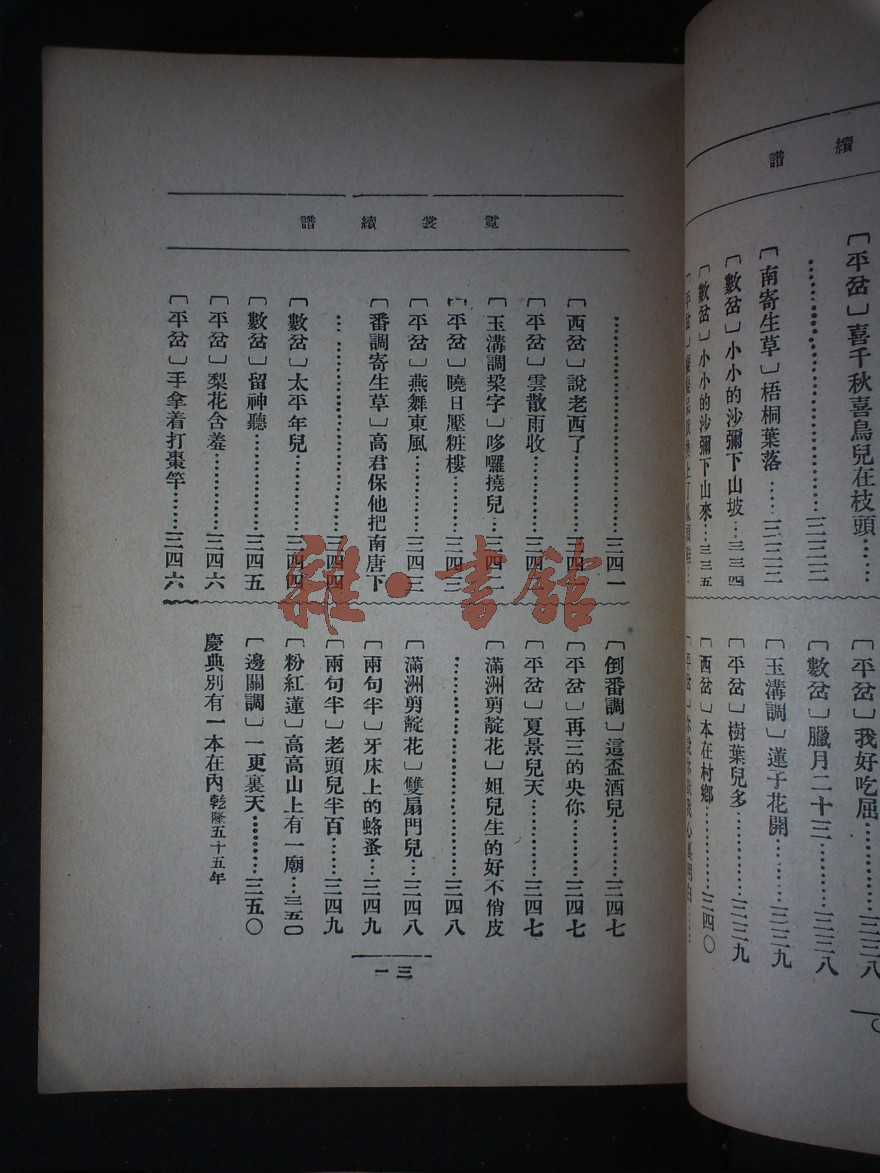 續譜
〔平岔〕喜千秋喜鳥兒在枝頭……
…………三三三
〔南寄生草〕梧桐葉落……三三三
〔數岔〕小小的沙彌下山坡…三三四
〔數岔〕小小的沙彌下山來…三三五
〔平岔〕
〔平岔〕我好吃屈……三三八
〔數岔〕臘月二十三……三三八
〔玉溝調〕蓮子花開……三三九
〔平岔〕樹葉兒多……三三九
〔西岔〕本在村鄉……三四〇
〔平岔〕
霓裳續譜
…………三四一
〔西岔〕說老西了……三四一
〔平岔〕雲散雨收……三四二
〔玉溝調梁字〕哆囉撓兒…三四二
〔平岔〕曉日壓粧樓……三四三
〔平岔〕燕舞東風……三四三
〔番調寄生草〕高君保他把南唐下
…………三四四
〔數岔〕太平年兒……三四四
〔數岔〕留神聽……三四五
〔平岔〕梨花含羞……三四六
〔平岔〕手拿着打棗竿……三四六
〔倒番調〕這盃酒兒……三四七
〔平岔〕再三的央你……三四七
〔平岔〕夏景兒天……三四七
〔滿洲剪靛花〕姐兒生的好不俏皮
…………三四八
〔滿洲剪靛花〕雙扇門兒…三四八
〔兩句半〕牙床上的蛒蚤…三四九
〔兩句半〕老頭兒半百……三四九
〔粉紅蓮〕高高山上有一廟…三五〇
〔邊關調〕一更裏天……三五〇
慶典別有一本在內乾隆五十五年
三一
雜·書館